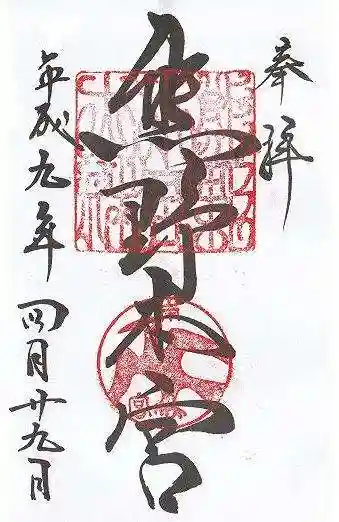 奉拝
熊野本宮
平成九年
四月廿九日